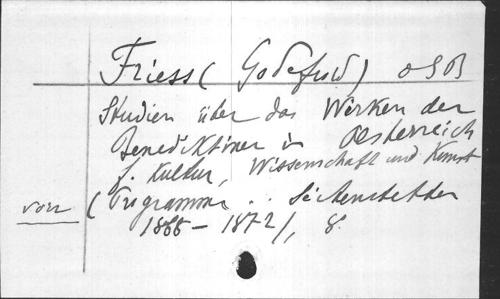 Friess (Godefrid) OSB
Studien über das Wirken der
Benediktiner in Oesterreich
f. Kultur, Wissenschaft und Kunst
von (Programm .. Seitenstetten
1868 – 1872), 8.